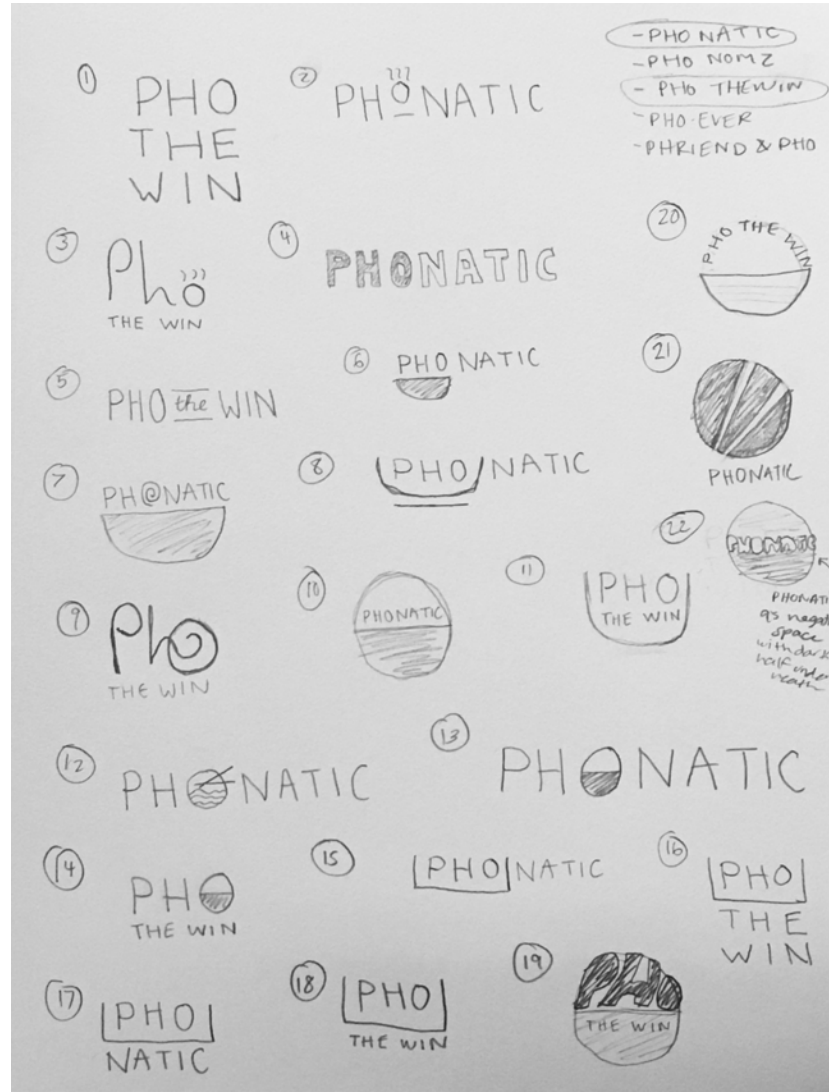 - PHO NATIC
- PHO NOMZ
- PHO THEWIN
- PHO·EVER
- PHRIEND & PHO
1
PHO
THE
WIN
2
PHONATIC
3
Pho
THE WIN
4
PHONATIC
20
PHO THE WIN
5
PHO the WIN
6
PHO NATIC
21
PHONATIC
7
PH@NATIC
8
PHO NATIC
22
PHONATIC
PHONAT
as negat
space
with dar
half under
neath
9
Pho
THE WIN
10
PHONATIC
11
PHO
THE WIN
12
PHONATIC
13
PHONATIC
14
PHO
THE WIN
15
PHO NATIC
16
PHO
THE
WIN
17
PHO
NATIC
18
PHO
THE WIN
19
PHO
THE WIN